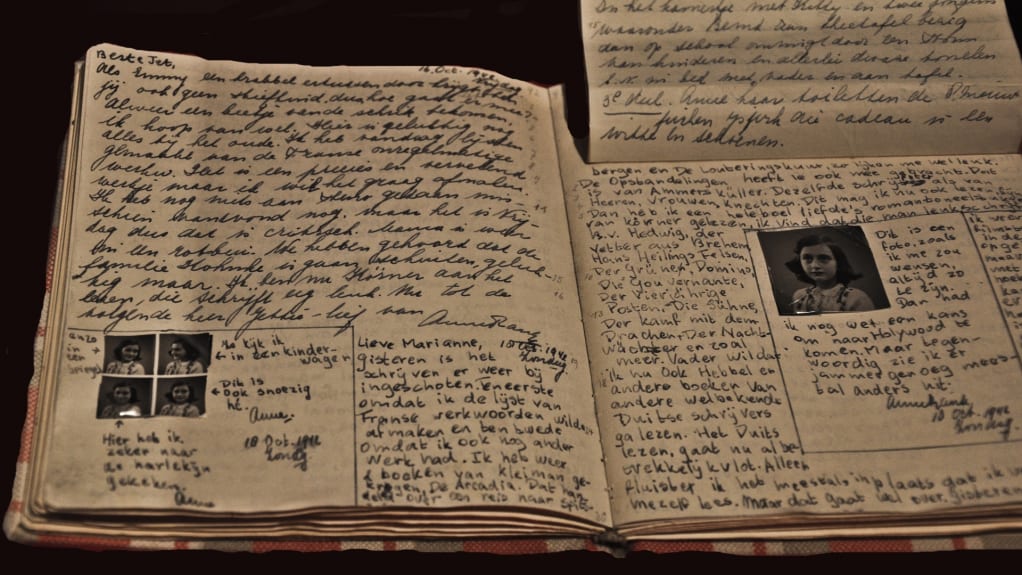 Beste Jet,
16 Oct. 1942
Als Emmy een krabbel ertussendoor
jij ook geen stiefkind, dus hoe gaat er mee?
Alweer een beetje van de schrik bekomen.
ik hoop van wel. Hier is gelukkig nog
alles bij het oude. Ik heb vandaag lijsten
gemaakt van de Franse onregelmatige
werkw. Dat is een precies en vervelend
werkje maar ik wil het graag afmaken.
Ik heb nog niets aan steno gedaan mis-
schien vanavond nog, maar het is Vrij-
dag dus dat is critisch. Mama is weer
in een
We hebben gehoord dat de
familie
is gaan schuilen, geluk-
kig maar. Ik ben nu Körner aan het
lezen, die schrijft erg leuk. Nu tot de
volgende keer
-lief van
Anne Frank
anzo
in
een
spiegel
Ho kijk ik
in een kinder-
wagen
Dit is
ook snoezig
hé.
Anne.
18 Oct. 1942
Zondag
Hier heb ik
zeker naar
de harlekijn
gekeken.
Anne
Lieve Marianne,
18 Oct. 1942
Zondag
gisteren is het
schrijven er weer bij
ingeschoten. Eneerste
omdat ik de lijst van
Franse werkwoorden wilde
afmaken en ten twede
omdat ik ook nog ander
werk had. Ik heb weer
2 booken van Kleiman ge-
kregen De Arcadia. Dat han-
delt over een reis naar Spits-
In het karretje met Kitty en twee jongens
waaronder Bernd aan theetafel bezig
dan op school omringd door een stoom
van kinderen en allerlei divaze tonelen
b.v. in bed met vader en aan tafel.
3e deel. Anne haar toiletten de 8 nieuwe
jurken ijsjurk die cadeau is een
witte en schoenen.
bergen en De Louberingskuur, zo lijken me wel leuk.
De Opstandelingen heeft ie ook mee gebracht. Dit
is van Ammers Küller. Dezelfde schrijfster
Heeren, Vrouwen, Knechten. Dit mag ik nu ook lezen, fijn!
Dan heb ik een heleboel liefde's romantoneelstukjes
van Körner gelezen, ik vind dat die man leuk schrijft
b.v. Hedwig, der
Vetter aus Brehem
Hans Heilings Felsen,
Der Grüne Domino,
Die Gouvernante,
Der Vierjährige
Posten, Die Sühne,
Der Kamf mit dem
Drachen, Der Nacht-
Wächter en zoal
meer. Vader wil dat
ik nu ook Hebbel en
andere boeken van
andere welbekende
Duitse schrijvers
ga lezen. Het Duits
lezen, gaat nu al be-
trekkelijk vlot. Alleen
fluister ik het meestal, inplaats dat ik in
mezelf lees. Maar dat gaat wel over. gisteren
Dit is een
foto, zoals
ik me zou
wensen,
altijd zo
te zijn.
Dan had
ik nog wel een kans
om naar Holywood te
komen. Maar tegen-
woordig zie ik er
jammer genoeg mees-
tal anders uit.
Anne Frank
18 Oct. 1942
Zondag